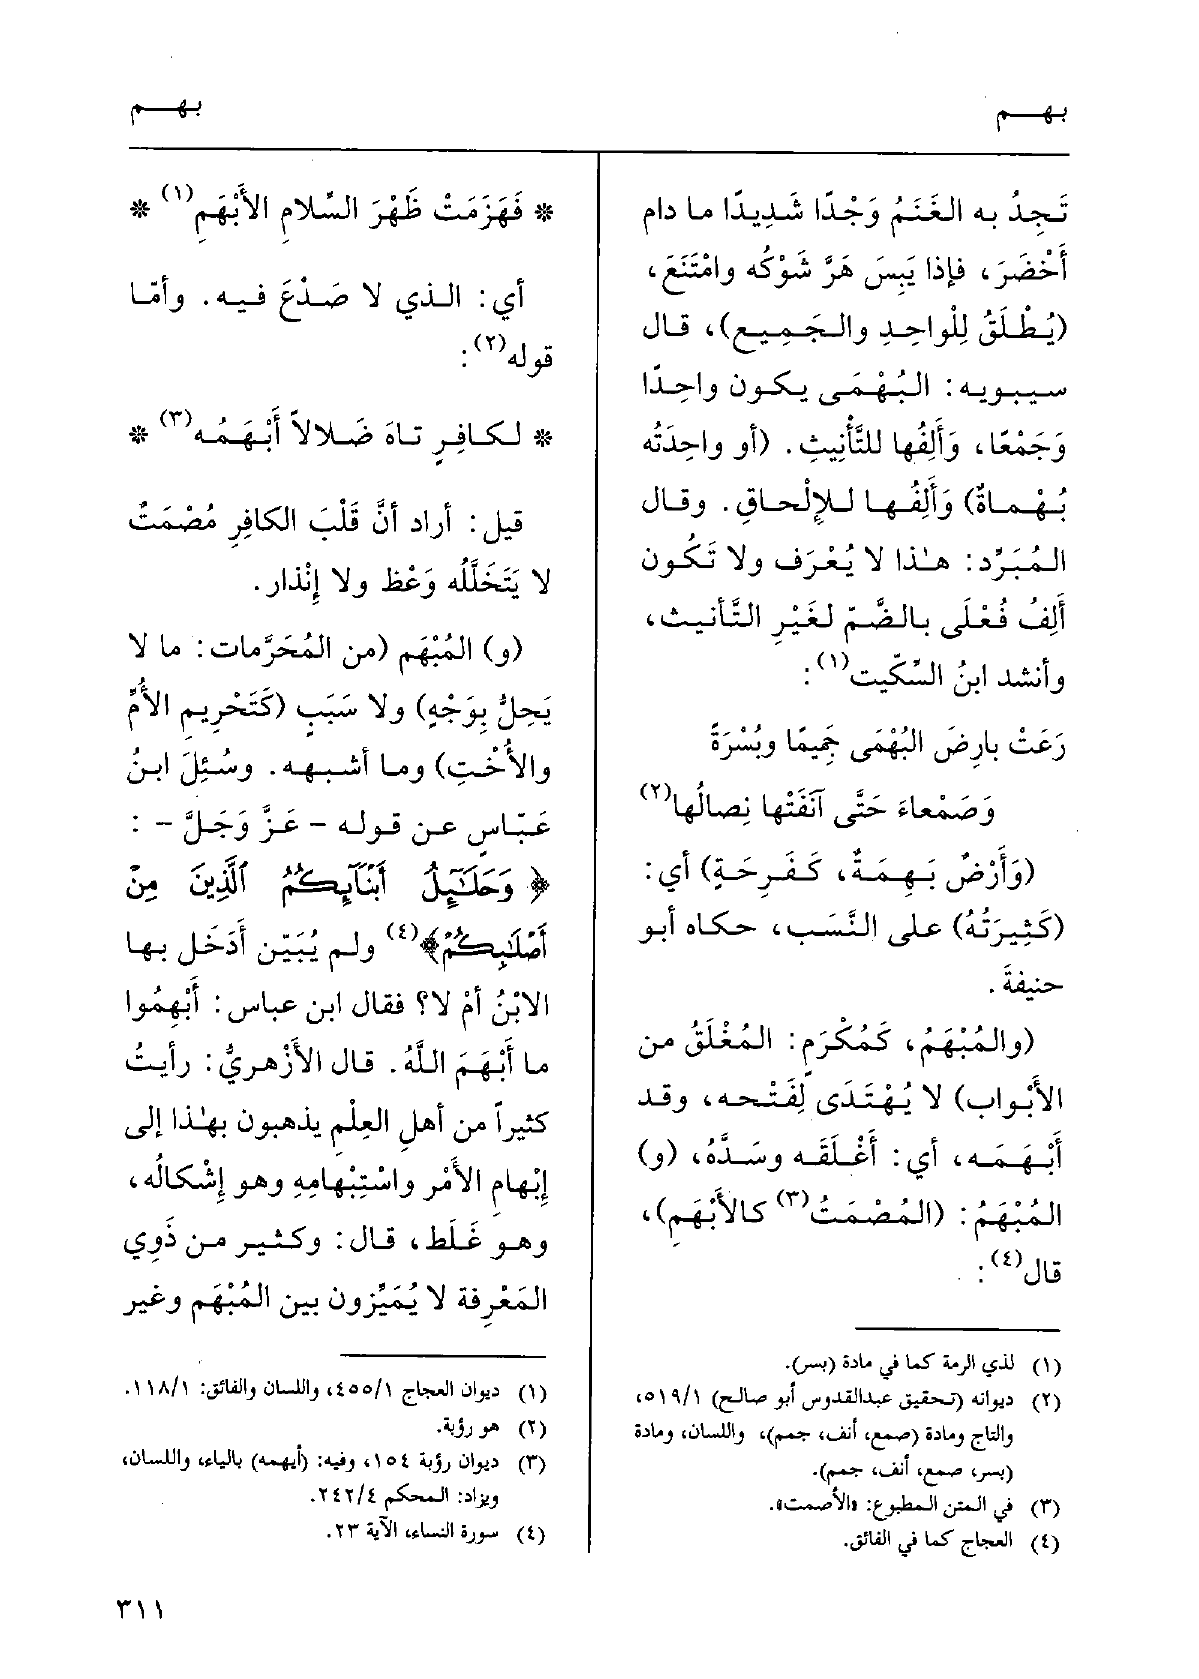 بهم
بهم
تَجِدُ به الغَنَمُ وَجْدًا شَدِيدًا ما دام
أَخْضَرَ، فإذا يَبِسَ هَرَّ شَوْكُه وامْتَنَعَ،
(يُطْلَقُ لِلْواحِدِ والجَمِيع)، قال
سيبويه: البُهْمَى يكون واحِدًا
وَجَمْعًا، وَأَلِفُها للتَّأنِيثِ. (أو واحِدَتُه
بُهْماةٌ) وَأَلِفُها للإِلْحاقِ. وقال
المُبَرِّد: هٰذا لا يُعْرَف ولا تَكُون
أَلِفُ فُعْلَى بالضَّمّ لغَيْرِ التَّأنيث،
وأنشد ابنُ السِّكّيت(١):
رَعَتْ بارِضَ البُهْمَى جَمِيمًا وبُسْرَةً
وَصَمْعاءَ حَتَّى آنَفَتْها نِصالُها(٢)
(وَأَرْضٌ بَهِمَةٌ، كَفَرِحَةٍ) أي:
(كَثِيرَتُهُ) على النَّسَب، حكاه أبو
حنيفةَ.
(والمُبْهَمُ، كَمُكْرَمٍ: المُغْلَقُ من
الأَبْواب) لا يُهْتَدَى لِفَتْحه، وقد
أَبْهَمَه، أي: أَغْلَقَه وسَدَّهُ، (و)
المُبْهَمُ: (المُصْمَتُ(٣) كالأَبْهَمِ)،
قال(٤):
(١) لذي الرمة كما في مادة (بسر).
(٢) ديوانه (تحقيق عبدالقدوس أبو صالح) ٥١٩/١،
والتاج ومادة (صمع، أنف، جمم)، واللسان، ومادة
(بسر، صمع، أنف، جمم).
(٣) في المتن المطبوع: «الأصمت».
(٤) العجاج كما في الفائق.
* فَهَزَمَتْ ظَهْرَ السِّلامِ الأَبْهَمِ(١) *
أي: الذي لا صَدْعَ فيه. وأمّا
قوله(٢):
* لكافِرٍ تاهَ ضَلالاً أَبْهَمُه(٣) *
قيل: أراد أنَّ قَلْبَ الكافِرِ مُصْمَتٌ
لا يَتَخَلَّلُه وَعْظ ولا إِنْذار.
(و) المُبْهَم (من المُحَرَّمات: ما لا
يَحِلُّ بِوَجْهٍ) ولا سَبَبٍ (كَتَحْرِيمِ الأُمِّ
والأُخْتِ) وما أشبهه. وسُئِلَ ابنُ
عَبّاسٍ عن قوله – عَزَّ وَجَلَّ – :
﴿ وَحَلَٰٓئِلُ أَبْنَآئِكُمُ ٱلَّذِينَ مِنْ
أَصْلَٰبِكُمْ﴾(٤) ولم يُبَيّن أَدَخَل بها
الابْنُ أمْ لا؟ فقال ابن عباس: أَبْهِمُوا
ما أَبْهَمَ اللَّهُ. قال الأَزْهريُّ: رأيتُ
كثيراً من أهلِ العِلْم يذهبون بهٰذا إلى
إِبْهامِ الأَمْر واسْتِبْهامِهِ وهو إِشْكالُه،
وهو غَلَط، قال: وكثير من ذَوِي
المَعْرِفة لا يُمَيِّزون بين المُبْهَم وغير
(١) ديوان العجاج ٤٥٥/١، واللسان والفائق: ١١٨/١.
(٢) هو رؤبة.
(٣) ديوان رؤبة ١٥٤، وفيه: (أيهمه) بالياء، واللسان،
ويزاد: المحكم ٢٤٢/٤.
(٤) سورة النساء، الآية ٢٣.
٣١١